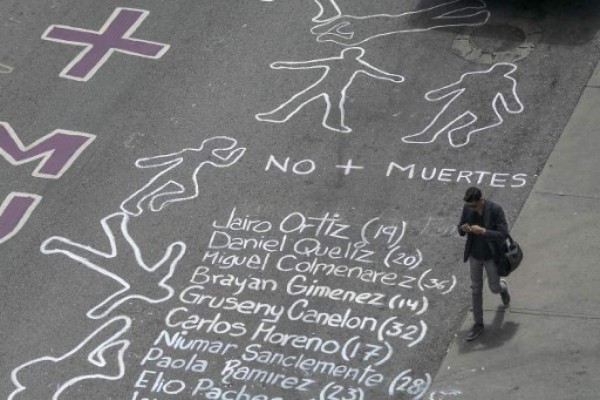 +
M
NO + MUERTES
Jairo Ortiz (19)
Daniel Queliz (20)
Miguel Colmenarez (36)
Brayan Gimenez (14)
Gruseny Canelon (32)
Carlos Moreno (17)
Niumar Sanclemente (28)
Paola Ramirez (23)
Elio Pacheco